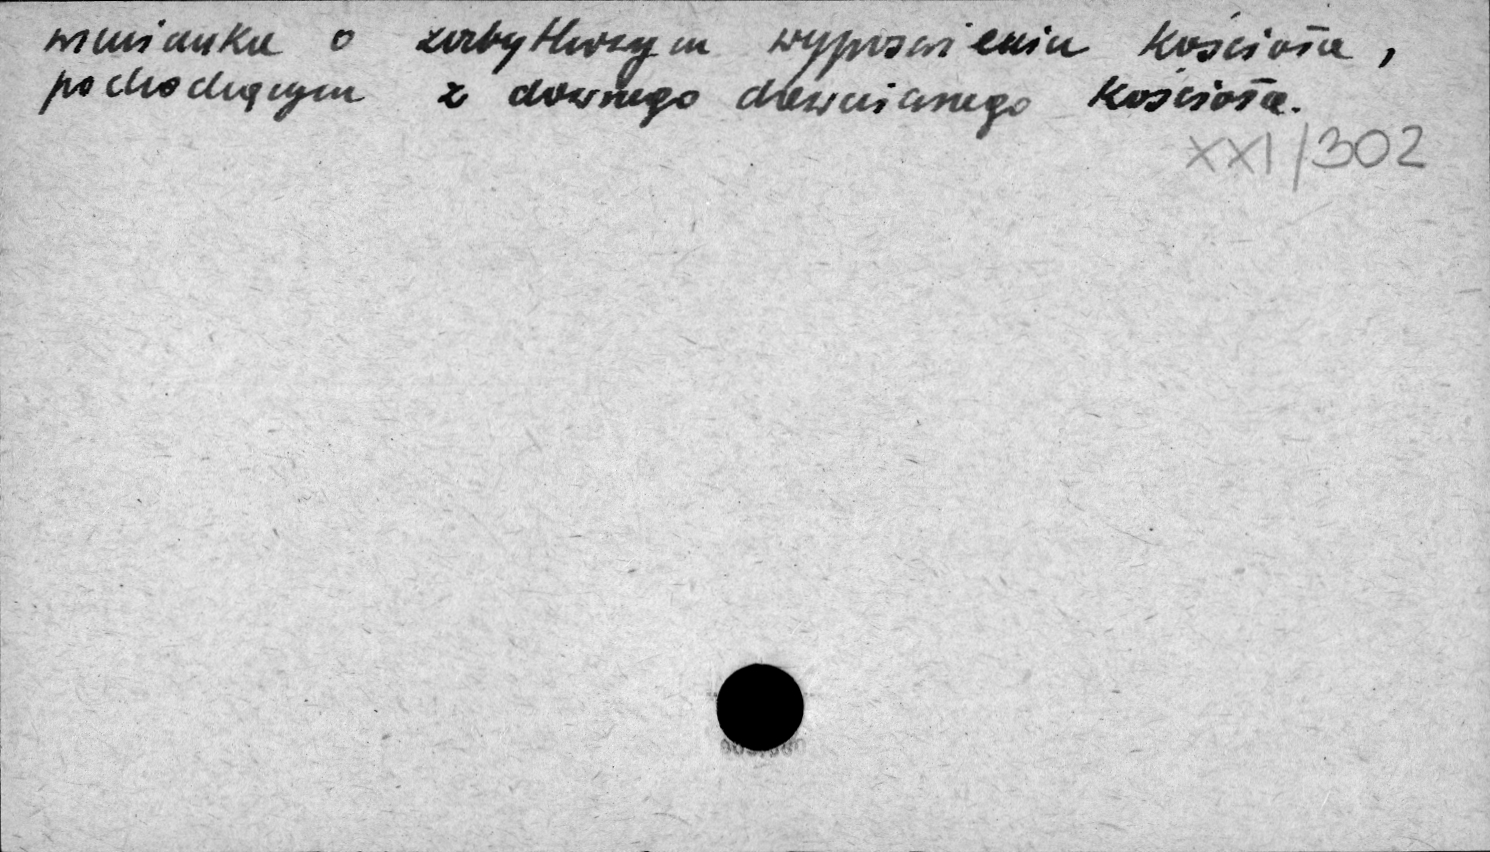 wzmianka o zabytkowym wyposażeniu kościoła,
pochodzącym z dawnego drewnianego kościoła.
XXI/302